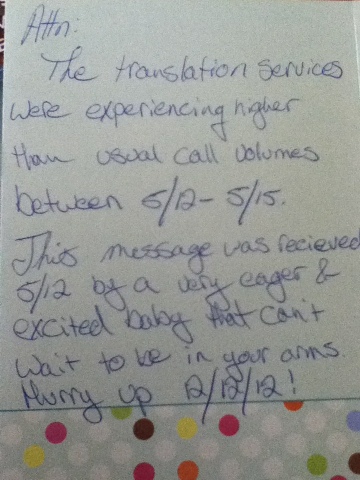 Attn:
The translation services
were experiencing higher
than usual call volumes
between 5/12 - 5/15.
This message was recieved
5/12 by a very eager &
excited baby that can't
wait to be in your arms.
Hurry up 12/12/12!